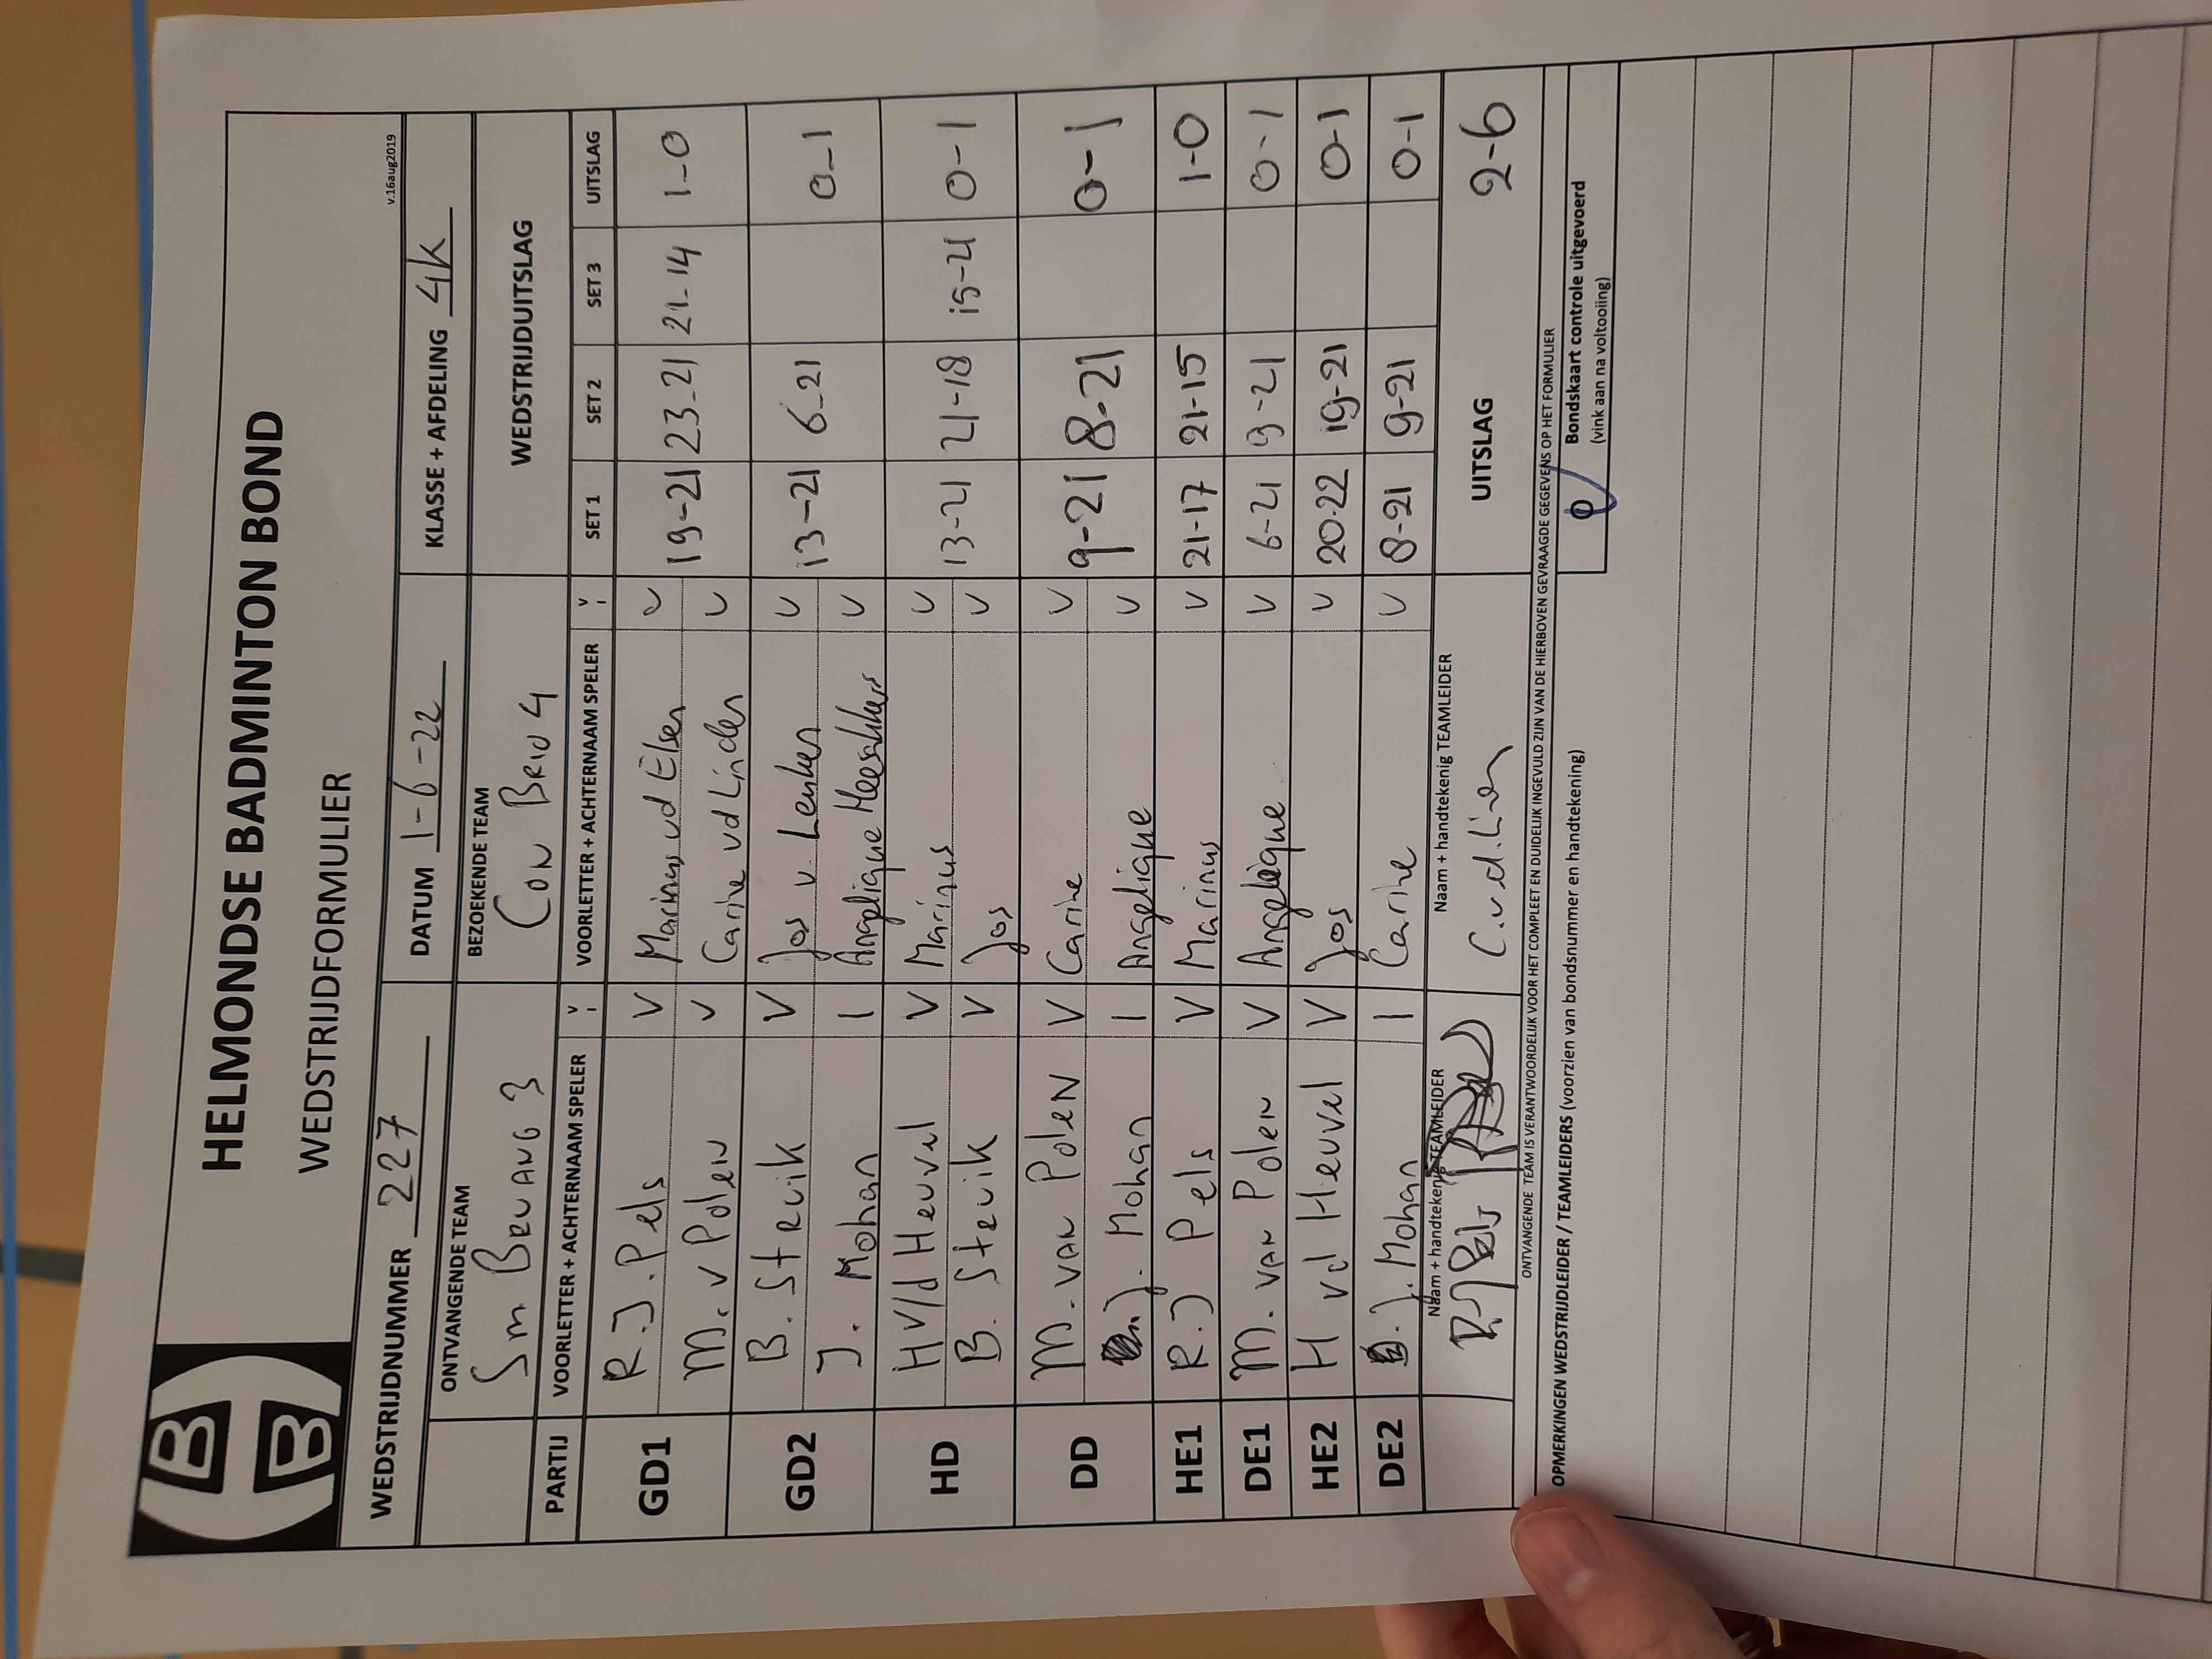 HELMONDSE BADMINTON BOND
WEDSTRIJDFORMULIER
v.16aug2019
WEDSTRIJDNUMMER 227 DATUM 1-6-22 KLASSE + AFDELING 4K
ONTVANGENDE TEAM BEZOEKENDE TEAM WEDSTRIJDUITSLAG
Sm BRUANG 3 CON BRIO 4
PARTIJ VOORLETTER + ACHTERNAAM SPELER V VOORLETTER + ACHTERNAAM SPELER V SET 1 SET 2 SET 3 UITSLAG
GD1 R.J. Pels V Marinus vd Elsen V 19-21 23-21 21-14 1-0
M. v Polen V Carine vd Linden V
GD2 B. Stevik V Jos v. Lenken V 13-21 6-21 0-1
J. Mohan I Angelique V
HD H v/d Heuvel V Marinus V 13-21 21-18 15-21 0-1
B. Stevik V Jos V
DD M. van Polen V Carine V 9-21 8-21 0-1
J. Mohan I Angelique V
HE1 R.J Pels V Marinus V 21-17 21-15 1-0
DE1 M. van Polen V Angelique V 6-21 9-21 0-1
HE2 H vd Heuvel V Jos V 20-22 19-21 0-1
DE2 J. Mohan I Carine V 8-21 9-21 0-1
Naam + handtekenig TEAMLEIDER Naam + handtekenig TEAMLEIDER
R.J Pels C. vd. Linden UITSLAG 2-6
ONTVANGENDE TEAM IS VERANTWOORDELIJK VOOR HET COMPLEET EN DUIDELIJK INGEVULD ZIJN VAN DE HIERBOVEN GEVRAAGDE GEGEVENS OP HET FORMULIER
OPMERKINGEN WEDSTRIJDLEIDER / TEAMLEIDERS (voorzien van bondsnummer en handtekening)
O Bondskaart controle uitgevoerd
(vink aan na voltooiing)